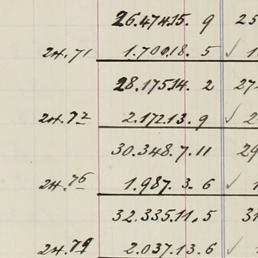 26.474.15. 9 25
24.71 1.700.18. 5 ✓ 1
28.175.14. 2 27
24.72 2.172.13. 9 ✓ 2
30.348.7.11 29
24.76 1.987. 3. 6 ✓ 1
32.335.11.5 31
24.79 2.037.13.6 ✓ 2